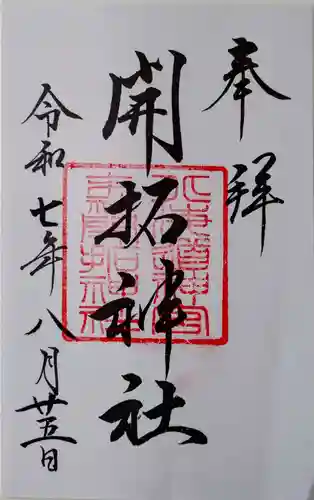 奉拝
開拓神社
北海道神宮
末社開拓神社
令和七年八月廿五日